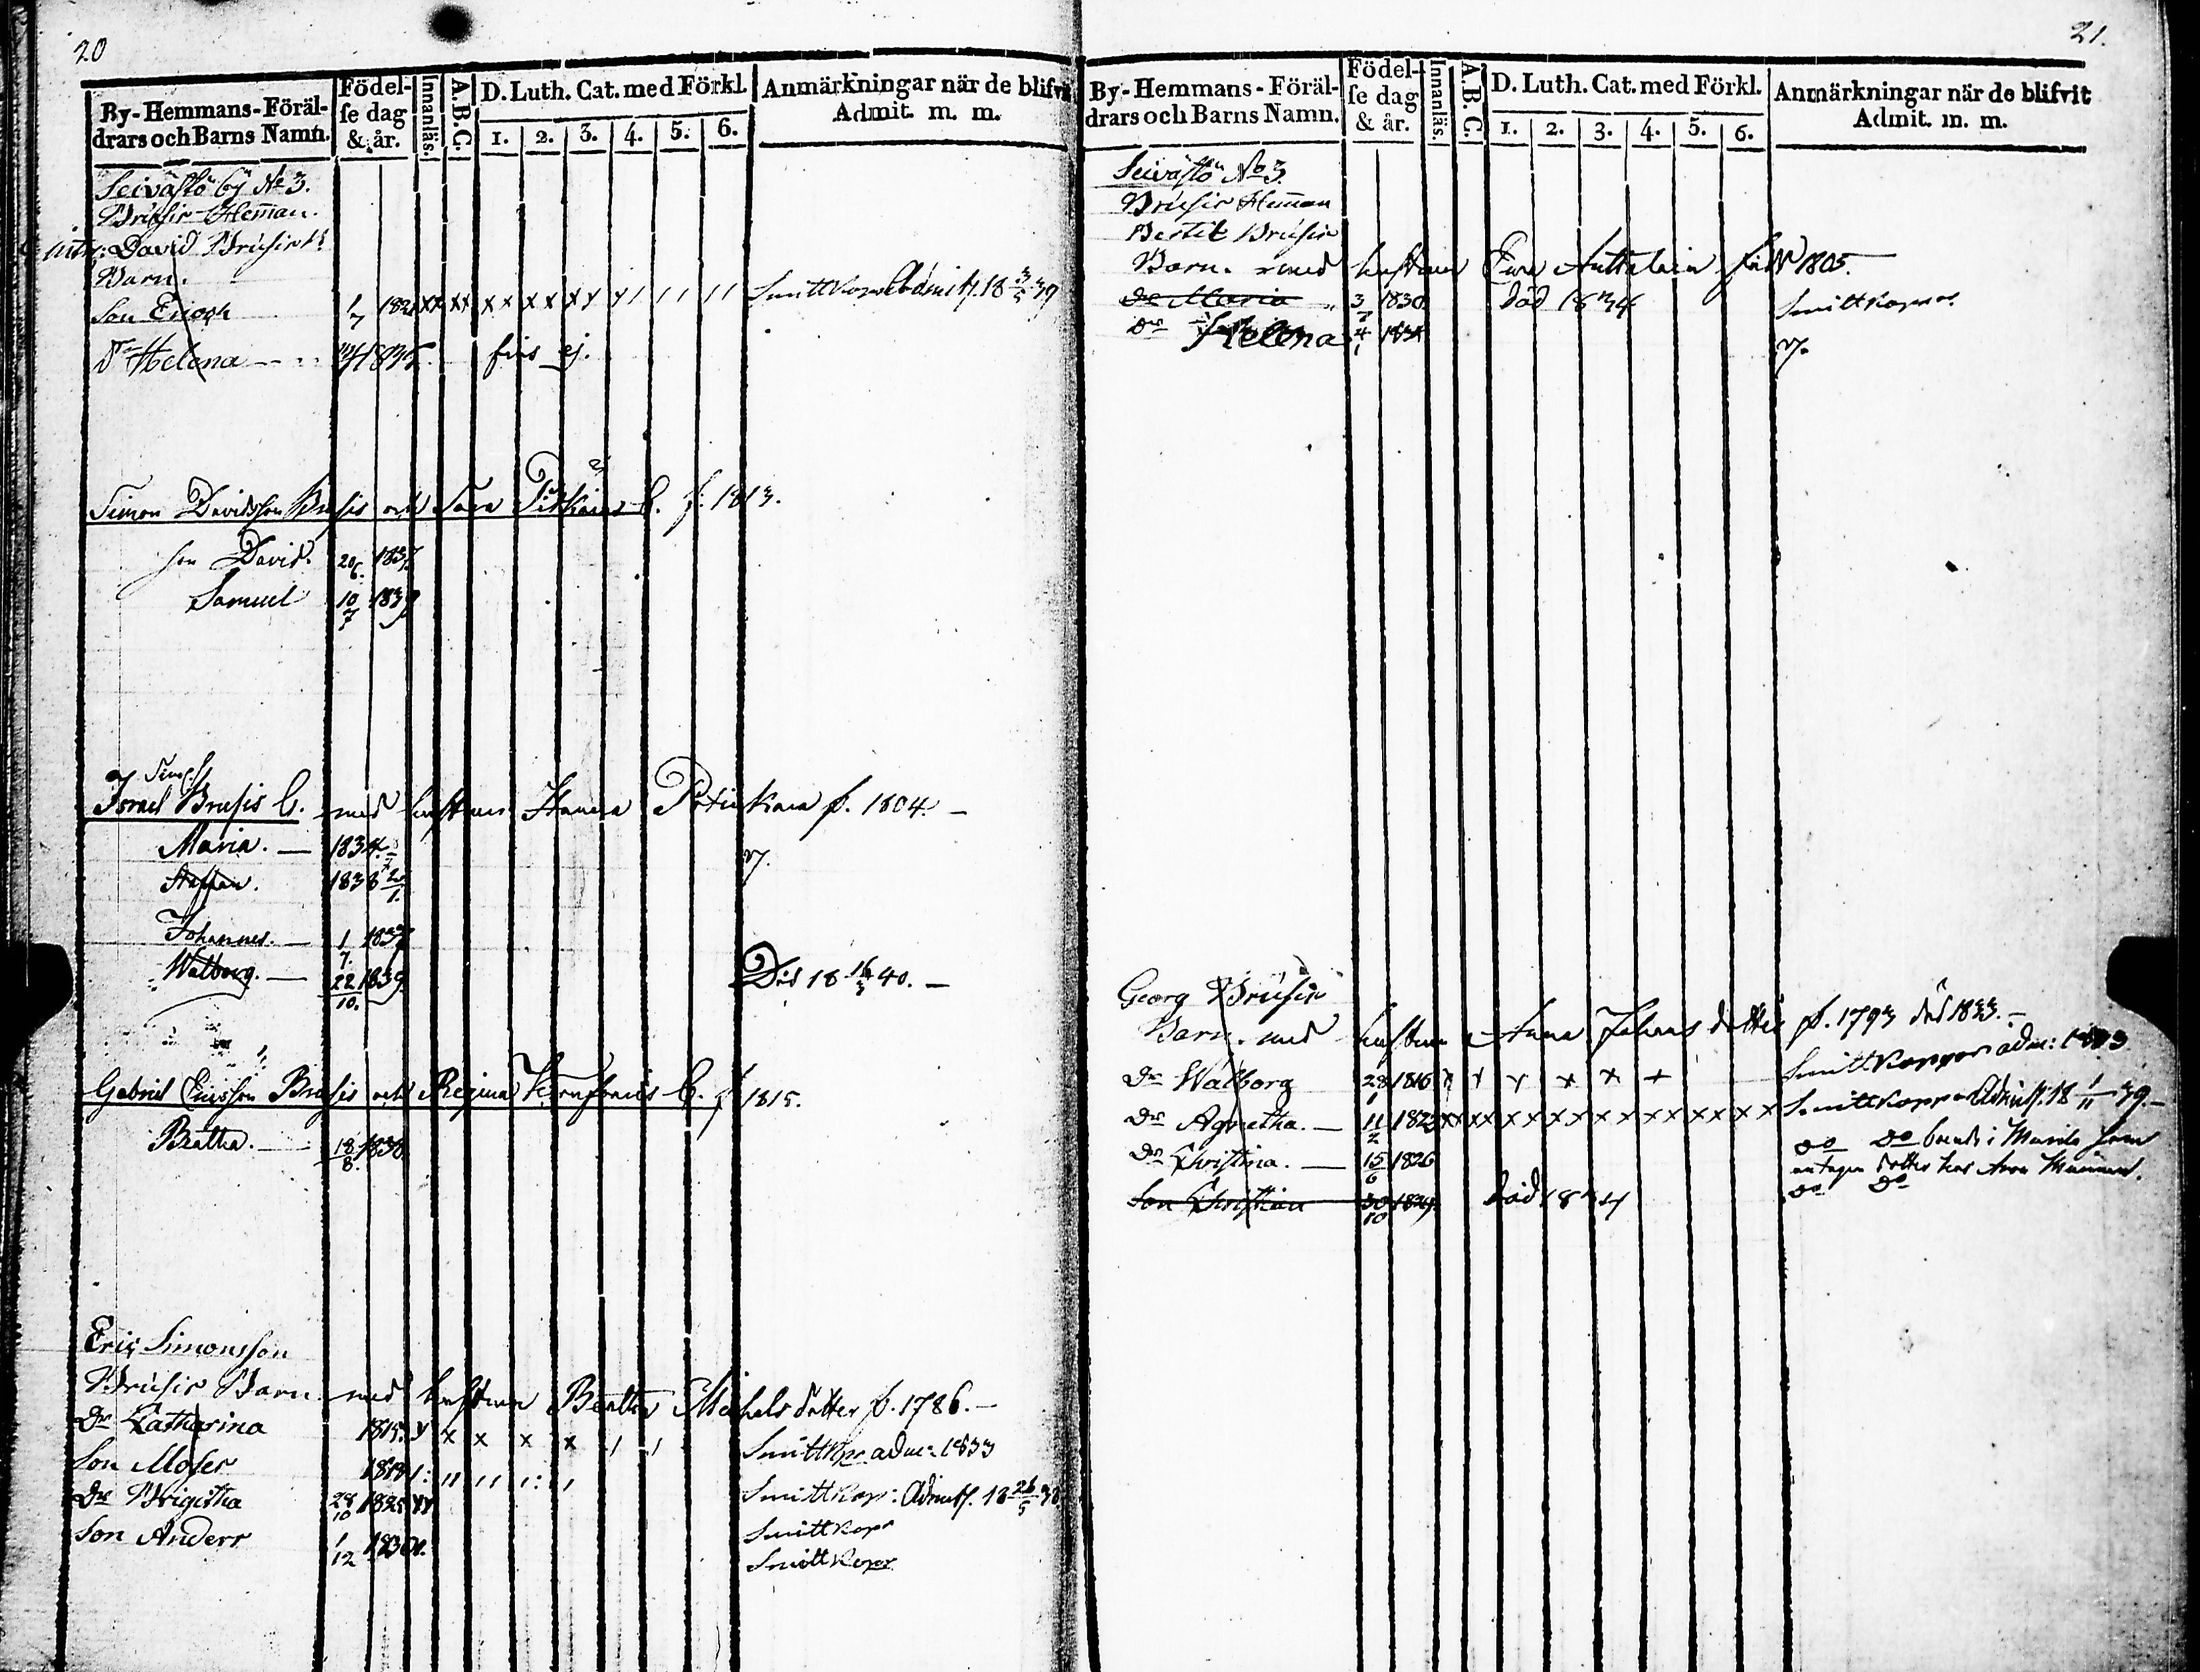 20
By-Hemmans-Föräl-
drars och Barns Namn.
Födel-
se dag
& år.
Innanläs.
A.B.C.
D. Luth. Cat. med Förkl.
1. 2. 3. 4. 5. 6.
Anmärkningar när de blifvit
Admit. m. m.
Seivästö by No 3.
Brusis Heman.
David Brusis
Barn.
Son Enoch 1/7 1821 xx xx xx xx xx Smittkoppor Admitt. 18 3/5 39
Dr Helena 1835. fins ej.
Simon Davidsson Brusis och Sara b. f. 1813.
son David. 20/6. 1837.
Samuel 10/7 1839
Simss.
Israel Brusis b. med hustrun f. 1804.
Maria. 1834. v.
Staffan. 1838 2/1.
Johannes. 1/7. 1837
Walborg. 22/10. 1839 Död 18 16/3 40.
Gabriel Ericsson Brusis och Regina b. f. 1815.
Beatha. 18/8. 1838
Eric Simonsson
Brusis Barn med hustrun Beatha Michels dotter f. 1786.
Dr Catharina 1815. x x x x x Smittkpr adm: 1833
Son Moses 1818 Smittkop: Admitt. 18 26/5 38
Dr Brigitha 28/10 1825 Smittkopr
Son Anders 1/12 1830. Smittkopr
21.
By-Hemmans-Föräl-
drars och Barns Namn.
Födel-
se dag
& år.
Innanläs.
A.B.C.
D. Luth. Cat. med Förkl.
1. 2. 3. 4. 5. 6.
Anmärkningar när de blifvit
Admit. m. m.
Seivästö No 3.
Brusis Heman
Bertil Brusis
Barn. med hustrun Eva Anttalain född 1805.
Dr Maria 3/7 1830 död 1834 Smittkoppor
Dr Helena 4/1 v.
Georg Brusis
Barn. med hustrun Anna Johans dotter f. 1793 död 1833.
Dr Walborg 28/1 1816 x x x x x x Smittkoppor adm: 1833
Dr Agnetha. 11/2 1822 xxxx x x x x x x x x x x x Smittkoppor Admitt. 18 1/11 39.
Dr Christina. 15/6 1826 Do Do
antagen dotter hos
Son Christian 30/10 död 1834 Do Do